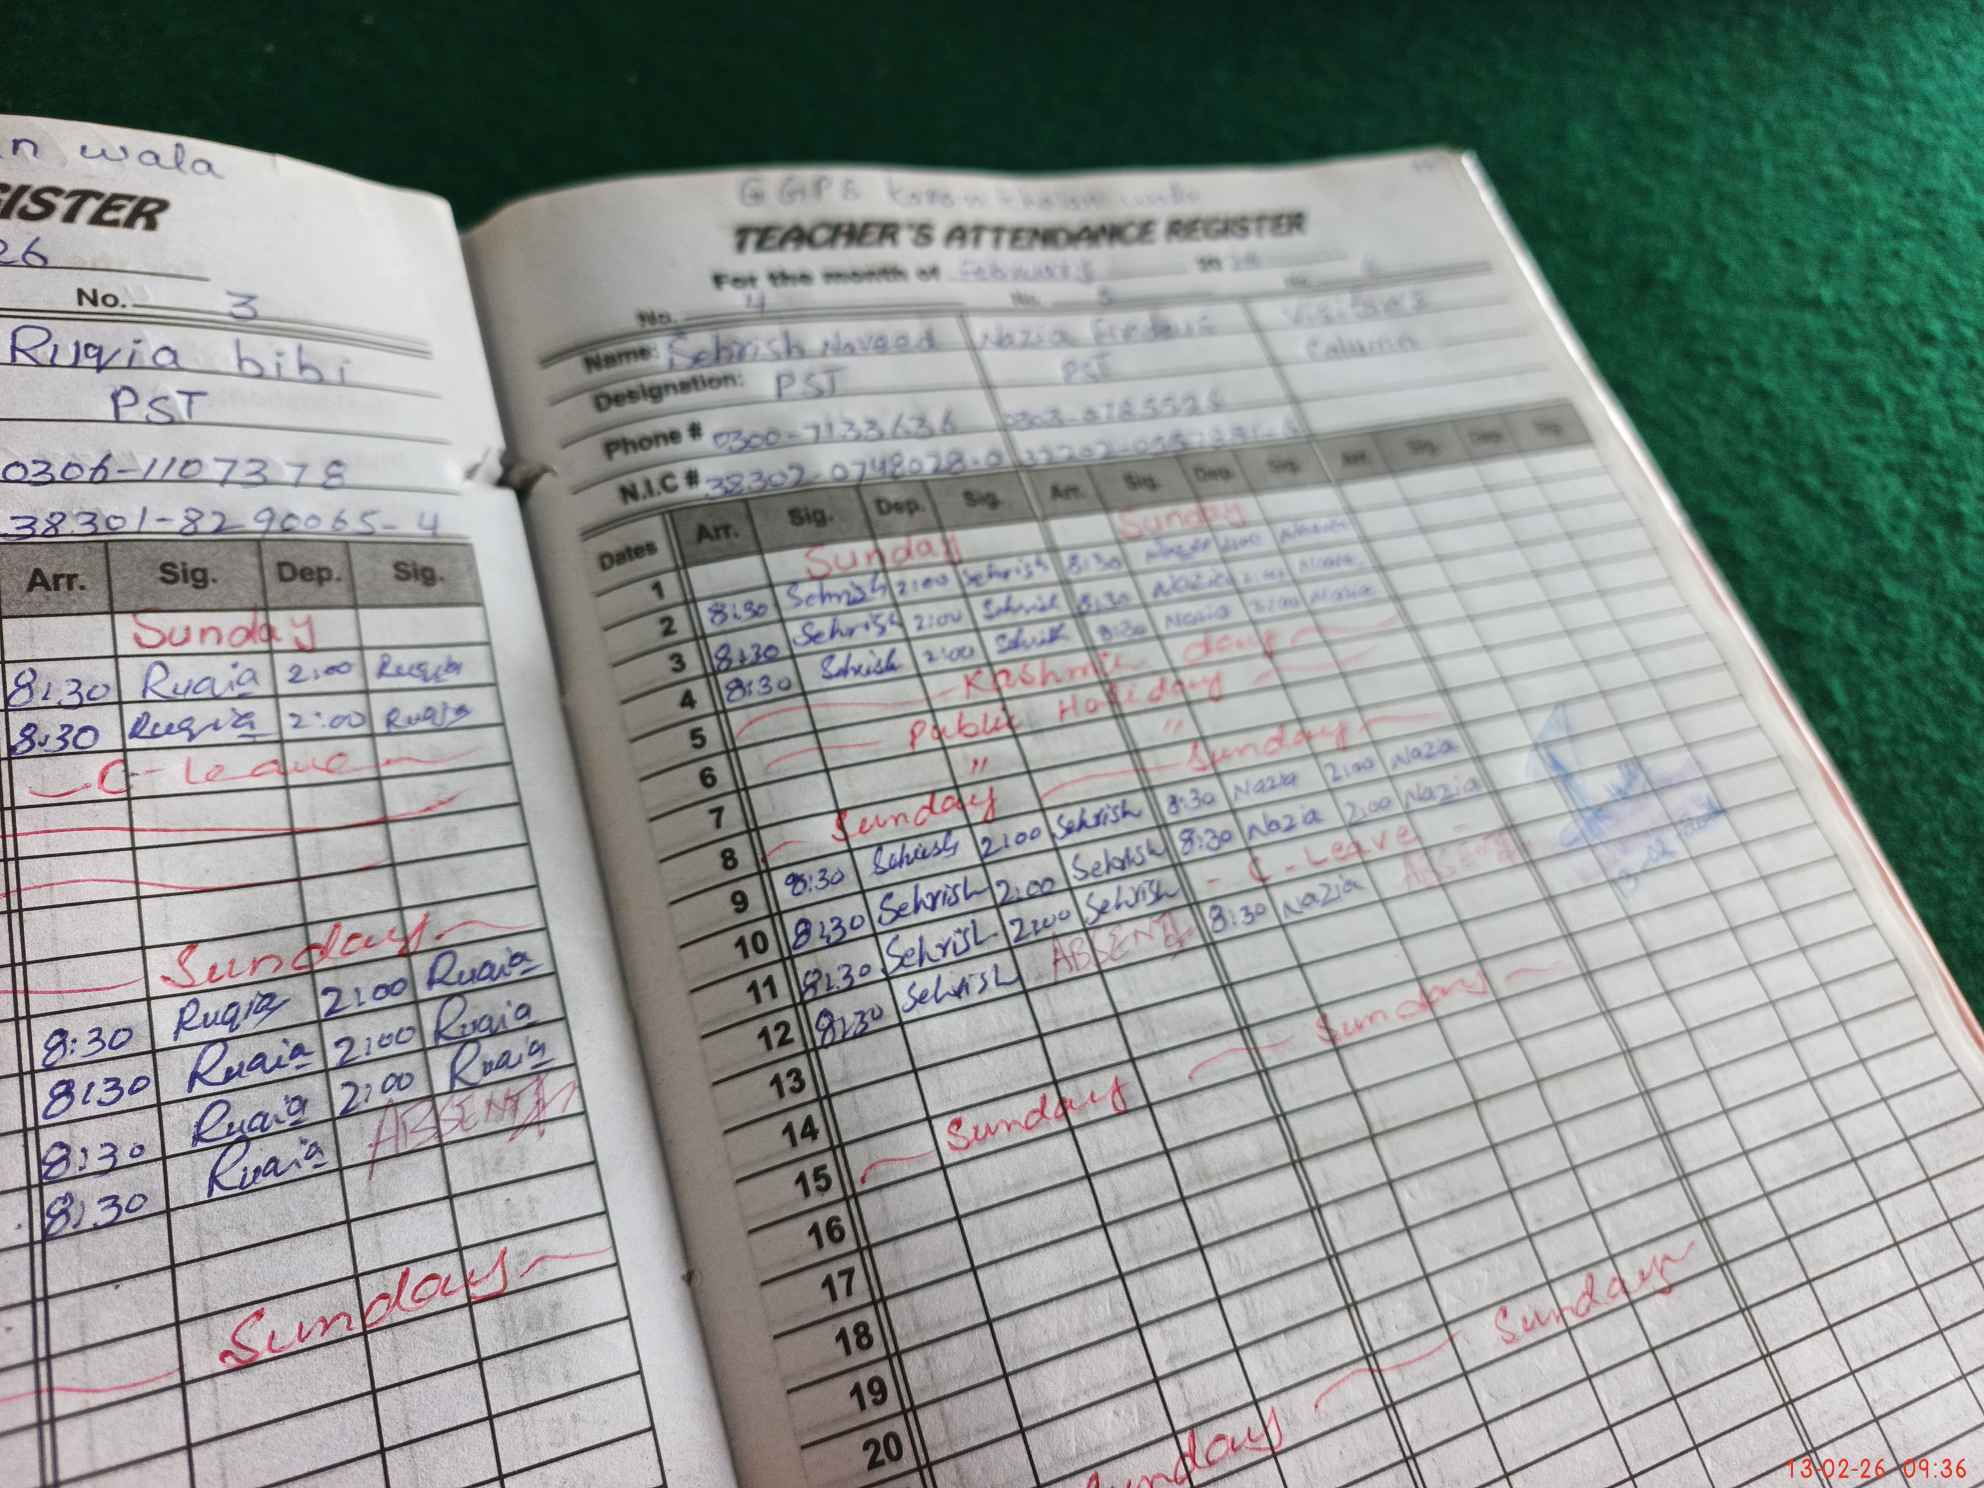 n wala
GISTER
26
No. 3
Ruqia bibi
PST
0306-1107378
38301-8290065-4
Arr. Sig. Dep. Sig.
Sunday
8:30 Ruqia 2:00 Ruqia
8:30 Ruqia 2:00 Ruqia
C-Leave
Sunday
8:30 Ruqia 2:00 Ruqia
8:30 Ruqia 2:00 Ruqia
8:30 Ruqia 2:00 Ruqia
8:30 Ruqia ABSENT
Sunday
GGPS
TEACHER'S ATTENDANCE REGISTER
For the month of February 20 26
No. 4 No. 5 No. 6
Name: Sehrish Naveed Nazia Visitor's
Designation: PST PST Column
Phone # 0300-7133636
N.I.C # 38302-0748028-0
Dates Arr. Sig. Dep. Sig. Arr. Sig. Dep. Sig. Arr. Sig. Dep. Sig.
1 Sunday Sunday
2 8:30 Sehrish 2:00 Sehrish 8:30 Nazia 2:00 Nazia
3 8:30 Sehrish 2:00 Sehrish 8:30 Nazia 2:00 Nazia
4 8:30 Sehrish 2:00 Sehrish 8:30 Nazia 2:00 Nazia
5 Kashmir day
6 Public Holiday
7 " "
8 Sunday Sunday
9 8:30 Sehrish 2:00 Sehrish 8:30 Nazia 2:00 Nazia
10 8:30 Sehrish 2:00 Sehrish 8:30 Nazia 2:00 Nazia
11 8:30 Sehrish 2:00 Sehrish - C-Leave
12 8:30 Sehrish ABSENT 8:30 Nazia ABSENT
13
14
15 Sunday Sunday
16
17
18
19
20
Sunday Sunday
13-02-26 09:36